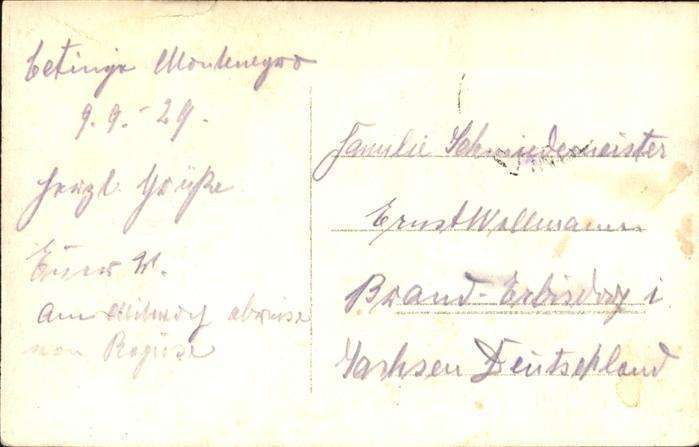 Cetinje Montenegro
9.9.-29.
Herzl. Grüße
Euer W.
am Mittwoch abreise
von Raguse
Familie Schmiedemeister
Ernst Wollmann
Brand-Erbisdorf i
Sachsen Deutschland